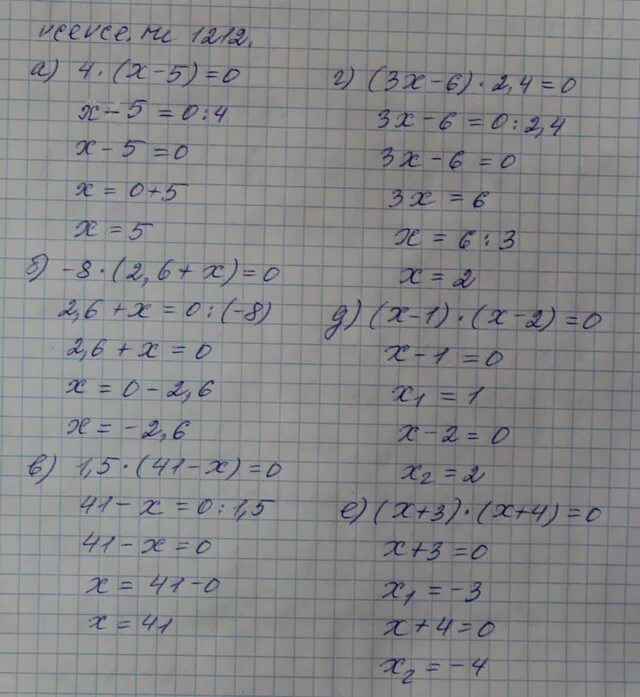 1212.
а) 4·(x-5)=0
x-5=0:4
x-5=0
x=0+5
x=5
б) -8·(2,6+x)=0
2,6+x=0:(-8)
2,6+x=0
x=0-2,6
x=-2,6
в) 1,5·(41-x)=0
41-x=0:1,5
41-x=0
x=41-0
x=41
г) (3x-6)·2,4=0
3x-6=0:2,4
3x-6=0
3x=6
x=6:3
x=2
д) (x-1)·(x-2)=0
x-1=0
x₁=1
x-2=0
x₂=2
е) (x+3)·(x+4)=0
x+3=0
x₁=-3
x+4=0
x₂=-4